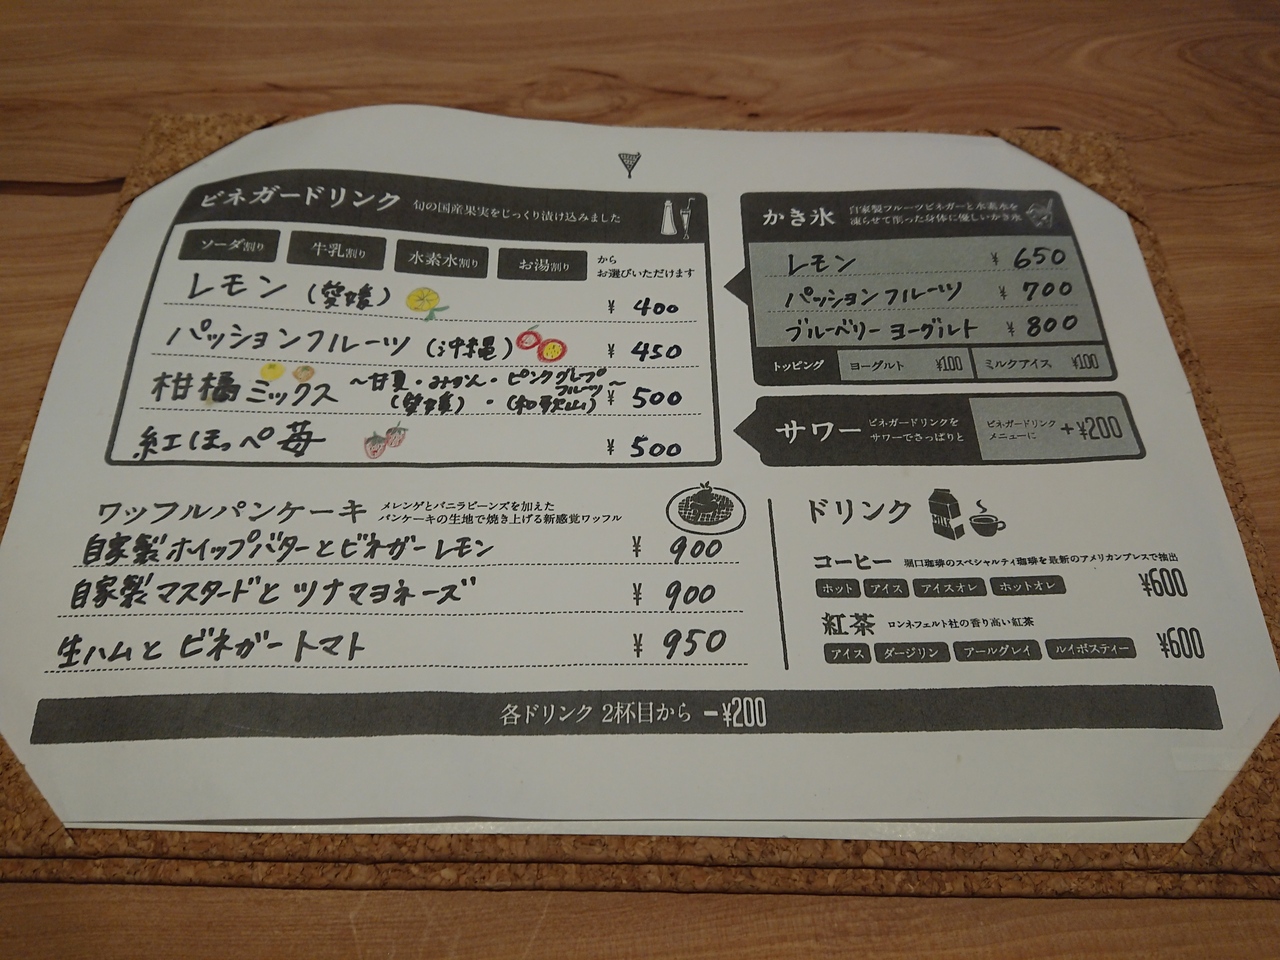 ビネガードリンク 旬の国産果実をじっくり漬け込みました
ソーダ割り 牛乳割り 水素水割り お湯割り から
お選びいただけます
レモン (愛媛) ¥ 400
パッションフルーツ (沖縄) ¥ 450
柑橘ミックス ~甘夏・みかん・ピンクグレープフルーツ~
(愛媛)・(和歌山) ¥ 500
紅ほっぺ苺 ¥ 500
かき氷 自家製フルーツビネガーと水素水を
凍らせて削った身体に優しいかき氷
レモン ¥ 650
パッションフルーツ ¥ 700
ブルーベリーヨーグルト ¥ 800
トッピング ヨーグルト ¥100 ミルクアイス ¥100
サワー ビネガードリンクを
サワーでさっぱりと
ビネガードリンク
メニューに +¥200
ワッフルパンケーキ メレンゲとバニラビーンズを加えた
パンケーキの生地で焼き上げる新感覚ワッフル
自家製ホイップバターとビネガーレモン ¥ 900
自家製マスタードとツナマヨネーズ ¥ 900
生ハムとビネガートマト ¥ 950
ドリンク
MILK
コーヒー 堀口珈琲のスペシャルティ珈琲を最新のアメリカンプレスで抽出
ホット アイス アイスオレ ホットオレ ¥600
紅茶 ロンネフェルト社の香り高い紅茶
アイス ダージリン アールグレイ ルイボスティー ¥600
各ドリンク 2杯目から -¥200